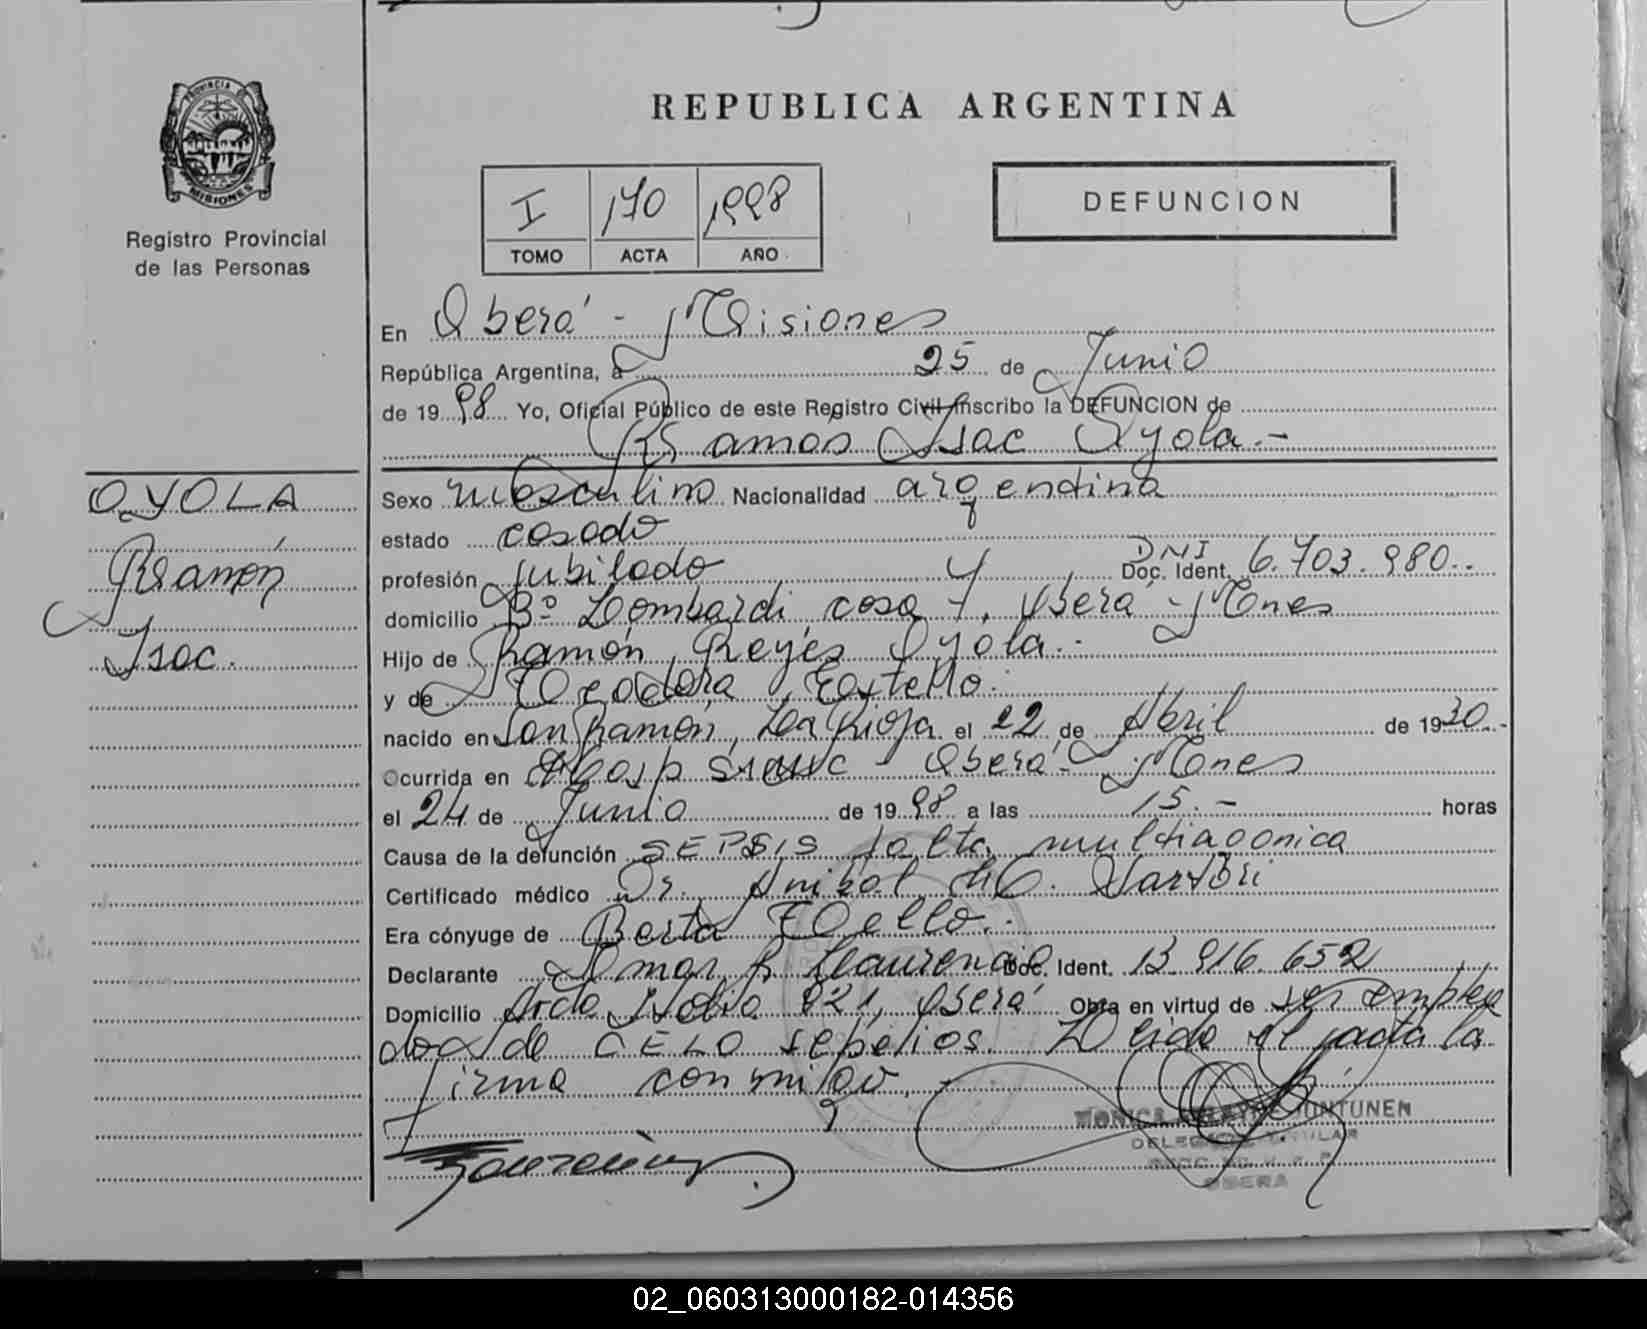 PROVINCIA DE
MISIONES
Registro Provincial
de las Personas
REPUBLICA ARGENTINA
I 170 1998
TOMO ACTA AÑO
DEFUNCION
En Oberá - Misiones
República Argentina, a 25 de Junio
de 1998 Yo, Oficial Público de este Registro Civil inscribo la DEFUNCION de
Ramón Isac Oyola.-
OYOLA
Ramón
Isac.
Sexo masculino Nacionalidad argentina
estado casado
profesión jubilado DNI Doc. Ident. 6.703.980..
domicilio Bº Lombardi casa 7, Oberá - Mnes
Hijo de Ramón Reyes Oyola.-
y de Teodora
nacido en San Ramón, La Rioja el 22 de Abril de 1930.-
Ocurrida en Hosp Oberá - Mnes
el 24 de Junio de 1998 a las 15.- horas
Causa de la defunción SEPSIS falta multiagonica
Certificado médico Dr. Anibal Sartori
Era cónyuge de Berta Tello.-
Declarante Omar Doc. Ident. 13.916.652
Domicilio 821, Oberá Obra en virtud de ser emplea
do de CELO sepelios. Leida el acta la
firma conmigo.
MONICA JUNTUNEN
DELEGADA TITULAR
OBERA
02_060313000182-014356